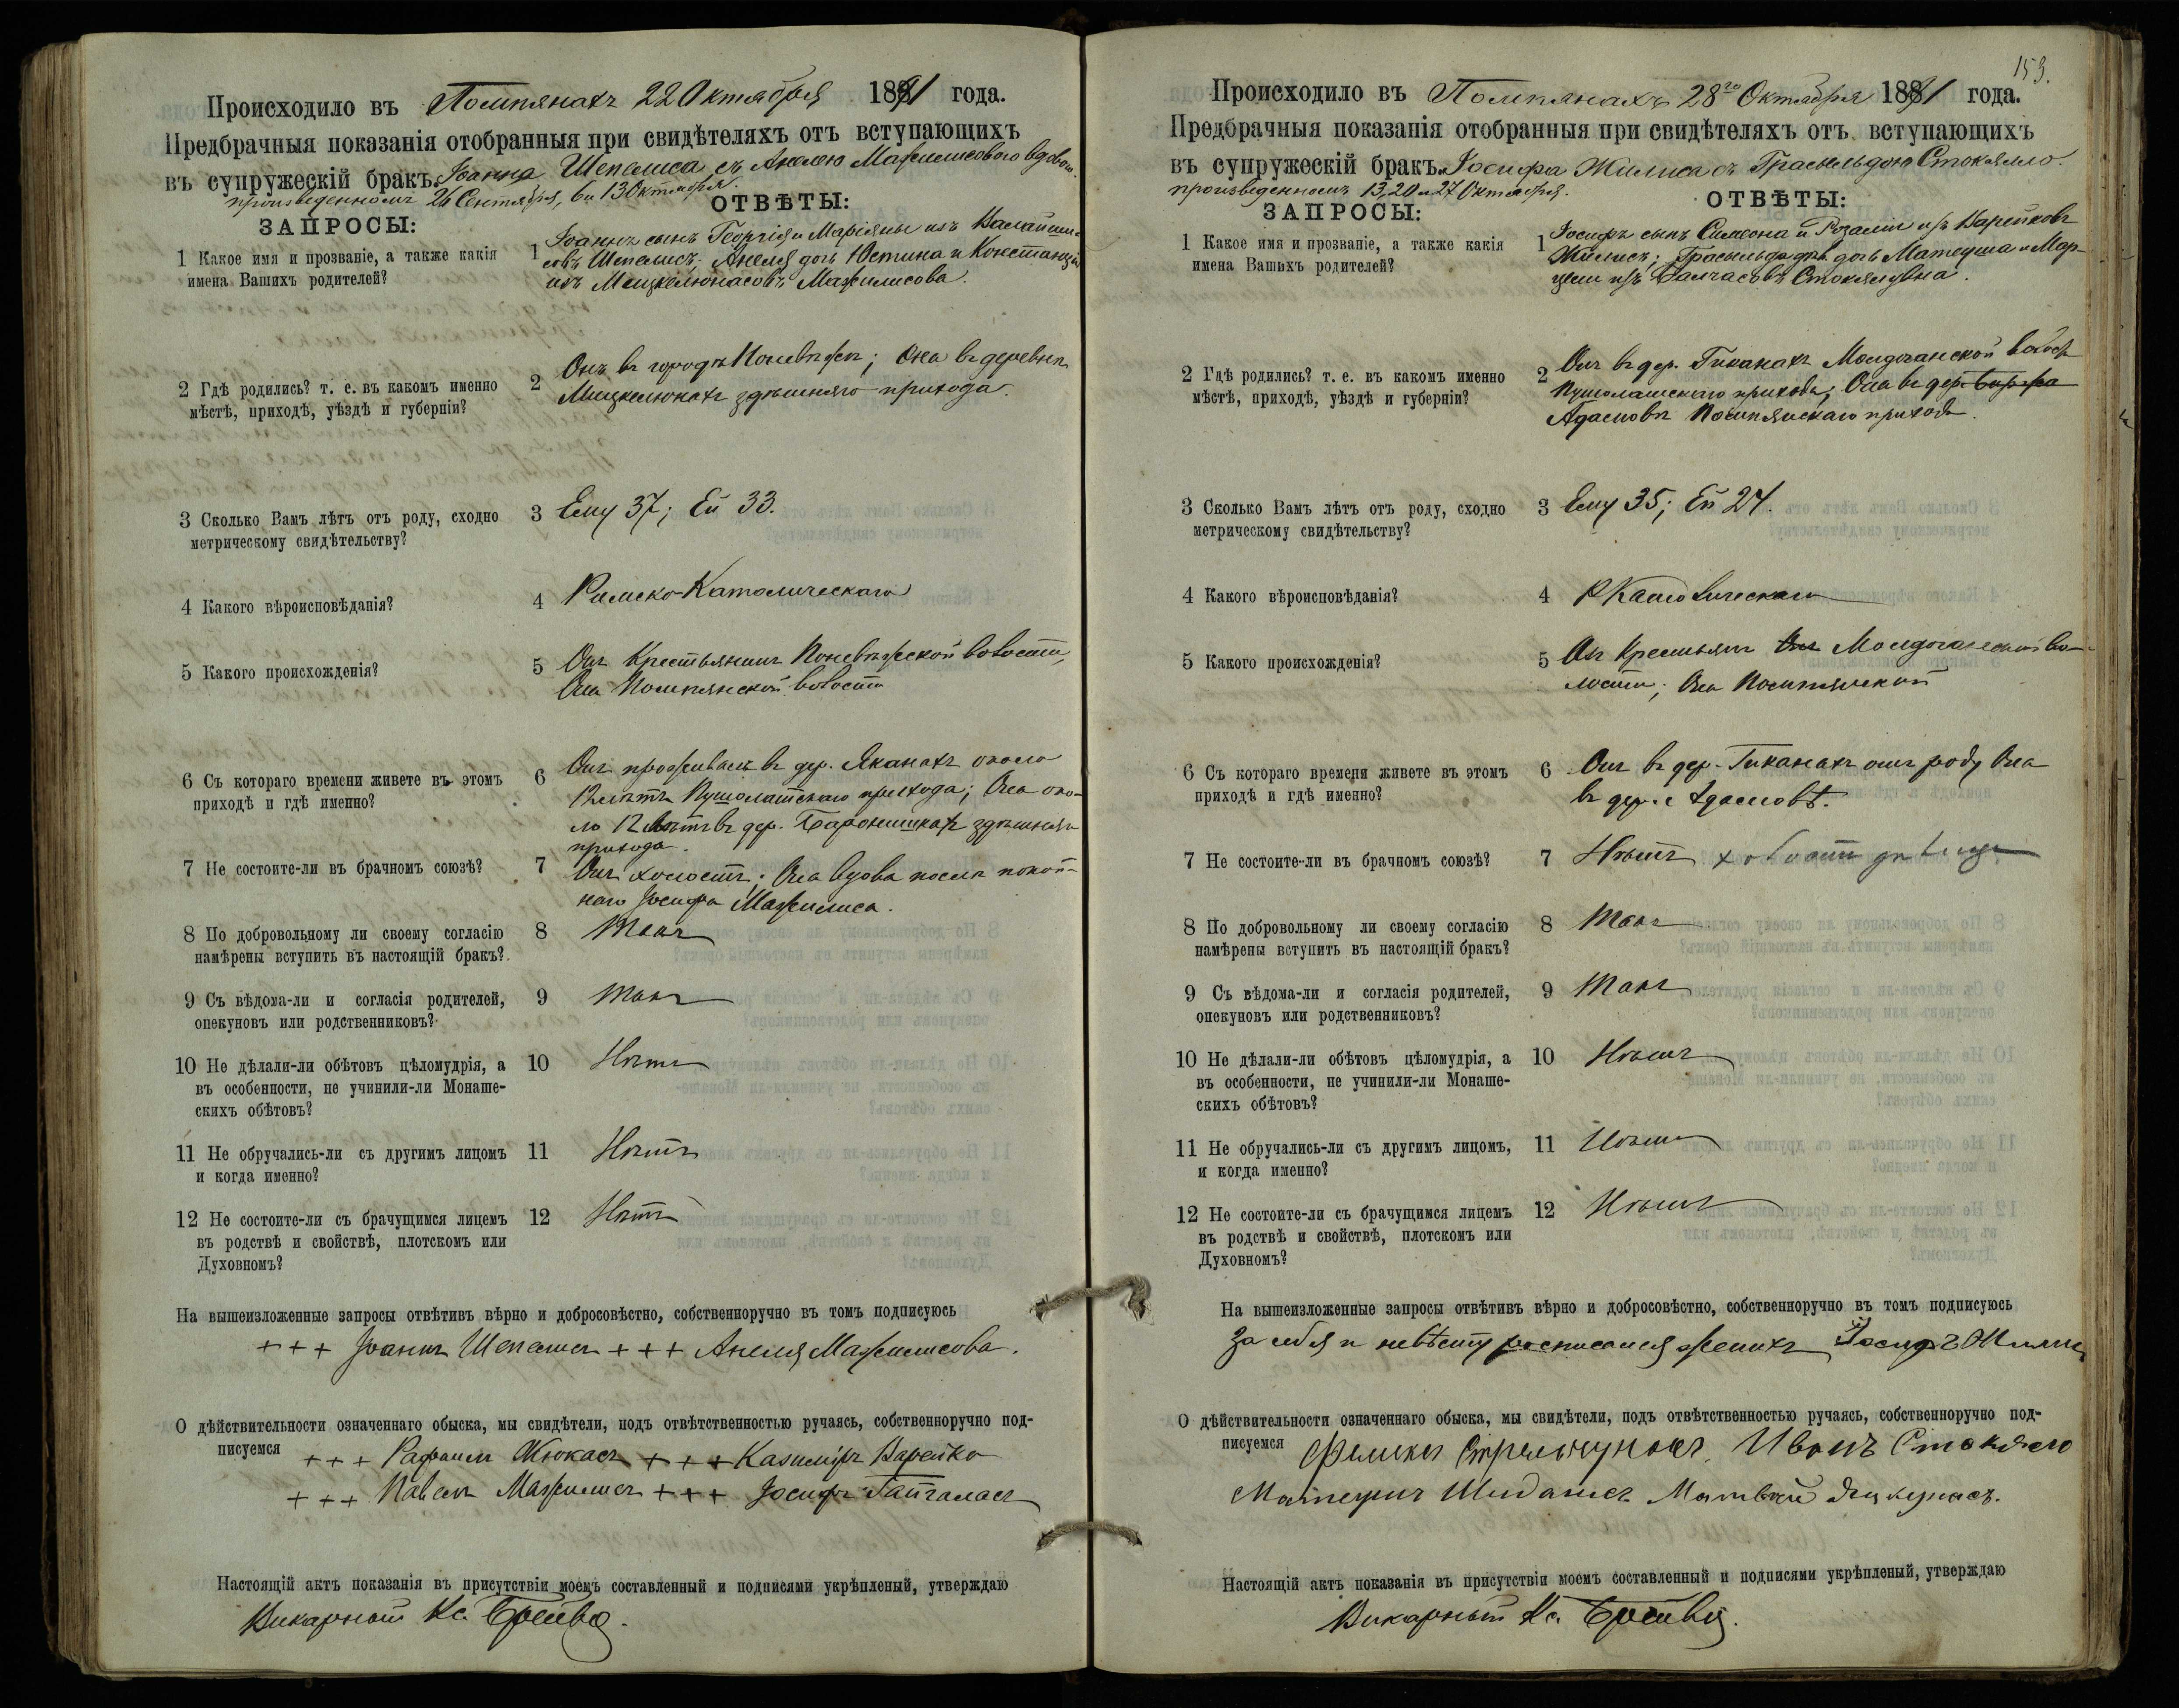 Происходило въ Помпянахъ 22 Октября 1891 года.
Предбрачныя показанія отобранныя при свидѣтеляхъ отъ вступающихъ
въ супружескій бракъ. Іоанна Шепелиса съ Анелею Мажилисовою вдовою.
произведенномъ 26 Сентября, 6 и 13 Октября.
ЗАПРОСЫ:
ОТВѢТЫ:
1 Какое имя и прозваніе, а также какія
имена Вашихъ родителей?
1 Іоаннъ сынъ Георгія и Маріяны изъ
Шепелисъ; Анеля дочь Юстина и Констанціи
изъ Мажилисова.
2 Гдѣ родились? т. е. въ какомъ именно
мѣстѣ, приходѣ, уѣздѣ и губерніи?
2 Онъ въ городѣ Поневѣжѣ; Она въ деревнѣ
Мицкелюнахъ здѣшняго прихода.
3 Сколько Вамъ лѣтъ отъ роду, сходно
метрическому свидѣтельству?
3 Ему 37; Ей 33.
4 Какого вѣроисповѣданія?
4 Римско-Католическаго
5 Какого происхожденія?
5 Онъ Крестьянинъ Поневѣжской волости,
Она Помпянской волости
6 Съ котораго времени живете въ этомъ
приходѣ и гдѣ именно?
6 Онъ проживалъ въ дер. Яканахъ около
12 лѣтъ Пушолатскаго прихода; Она око-
ло 12 лѣтъ въ дер. Баронишкахъ здѣшняго
прихода.
7 Не состоите-ли въ брачномъ союзѣ?
7 Онъ холостъ; Она вдова послѣ покой-
наго Іосифа Мажилиса.
8 По добровольному ли своему согласію
намѣрены вступить въ настоящій бракъ?
8 Такъ
9 Съ вѣдома-ли и согласія родителей,
опекуновъ или родственниковъ?
9 Такъ
10 Не дѣлали-ли обѣтовъ цѣломудрія, а
въ особенности, не учинили-ли Монаше-
скихъ обѣтовъ?
10 Нѣтъ
11 Не обручались-ли съ другимъ лицомъ
и когда именно?
11 Нѣтъ
12 Не состоите-ли съ брачущимся лицемъ
въ родствѣ и свойствѣ, плотскомъ или
Духовномъ?
12 Нѣтъ
На вышеизложенные запросы отвѣтивъ вѣрно и добросовѣстно, собственноручно въ томъ подписуюсь
+++ Іоаннъ Шепелисъ +++ Анеля Мажилисова.
О дѣйствительности означеннаго обыска, мы свидѣтели, подъ отвѣтственностью ручаясь, собственноручно под-
писуемся +++ Рафаилъ Жюкасъ +++ Казиміръ Варейко
+++ Павелъ Мажилисъ +++ Іосифъ Гайгаласъ
Настоящій актъ показанія въ присутствіи моемъ составленный и подписями укрѣпленый, утверждаю
Викарный Кс.
153.
Происходило въ Помпянахъ 28го Октября 1891 года.
Предбрачныя показанія отобранныя при свидѣтеляхъ отъ вступающихъ
въ супружескій бракъ. Іосифа Жилиса съ Грасыльдою Стокялло.
произведенномъ 13, 20 и 27 Октября.
ЗАПРОСЫ:
ОТВѢТЫ:
1 Какое имя и прозваніе, а также какія
имена Вашихъ родителей?
1 Іосифъ сынъ Симеона и Розаліи изъ Варейковъ
Жилисъ; Грасыльда дочь Матеуша и Мар-
цели изъ Стокялувна.
2 Гдѣ родились? т. е. въ какомъ именно
мѣстѣ, приходѣ, уѣздѣ и губерніи?
2 Онъ въ дер. Гиканахъ волости
Пушолатскаго прихода; Она въ дер.
Адамовѣ Помпянскаго прихода.
3 Сколько Вамъ лѣтъ отъ роду, сходно
метрическому свидѣтельству?
3 Ему 35; Ей 24.
4 Какого вѣроисповѣданія?
4 Р Католическаго
5 Какого происхожденія?
5 Онъ Крестьян во-
лости; Она Помпянской
6 Съ котораго времени живете въ этомъ
приходѣ и гдѣ именно?
6 Онъ въ дер. Гиканахъ отъ роду Она
въ дер. Адамовѣ.
7 Не состоите-ли въ брачномъ союзѣ?
7 Нѣтъ холостъ дѣвица
8 По добровольному ли своему согласію
намѣрены вступить въ настоящій бракъ?
8 Такъ
9 Съ вѣдома-ли и согласія родителей,
опекуновъ или родственниковъ?
9 Такъ
10 Не дѣлали-ли обѣтовъ цѣломудрія, а
въ особенности, не учинили-ли Монаше-
скихъ обѣтовъ?
10 Нѣтъ
11 Не обручались-ли съ другимъ лицомъ,
и когда именно?
11 Нѣтъ
12 Не состоите-ли съ брачущимся лицемъ
въ родствѣ и свойствѣ, плотскомъ или
Духовномъ?
12 Нѣтъ
На вышеизложенные запросы отвѣтивъ вѣрно и добросовѣстно, собственноручно въ томъ подписуюсь
За себя и невѣсту росписался женихъ Іосифъ Жилис
О дѣйствительности означеннаго обыска, мы свидѣтели, подъ отвѣтственностью ручаясь, собственноручно под-
писуемся Феликсъ Иванъ Стокяло
Матеушъ Матвѣй
Настоящій актъ показанія въ присутствіи моемъ составленный и подписями укрѣпленый, утверждаю
Викарный Кс.